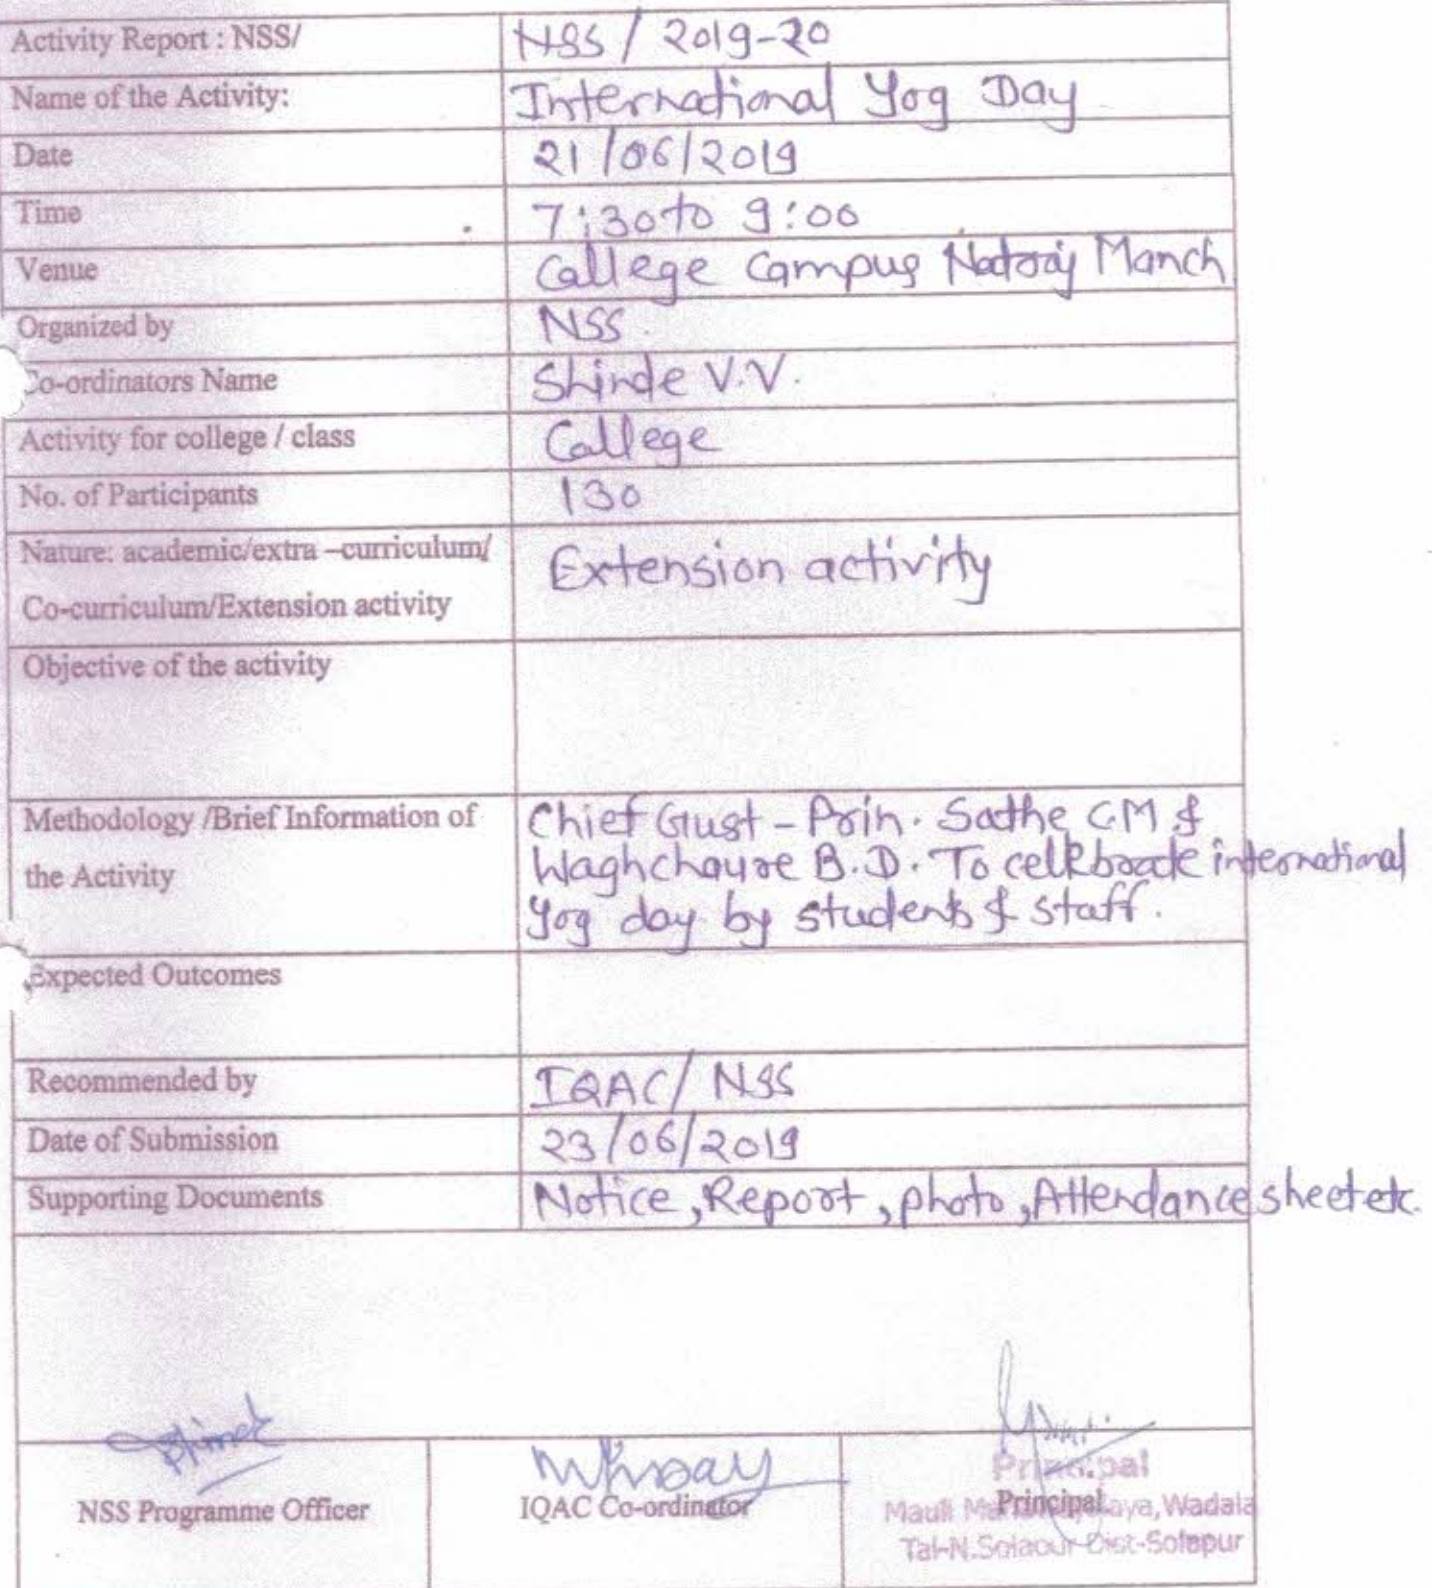 Activity Report : NSS/ NSS / 2019-20
Name of the Activity: International Yog Day
Date 21/06/2019
Time 7:30 to 9:00
Venue College Campus Natraj Manch
Organized by NSS.
Co-ordinators Name Shinde V.V.
Activity for college / class College
No. of Participants 130
Nature: academic/extra –curriculum/ Extension activity
Co-curriculum/Extension activity
Objective of the activity
Methodology /Brief Information of Chief Gust - Prin. Sathe C.M &
the Activity Waghchaure B.D. To celebrate international
Yog day by students & staff.
Expected Outcomes
Recommended by IQAC/ NSS
Date of Submission 23/06/2019
Supporting Documents Notice, Report, photo, Attendance sheet etc.
NSS Programme Officer
IQAC Co-ordinator
Principal
Principal
Mauli Wadala
Tal-N.Solapur Dist-Solapur